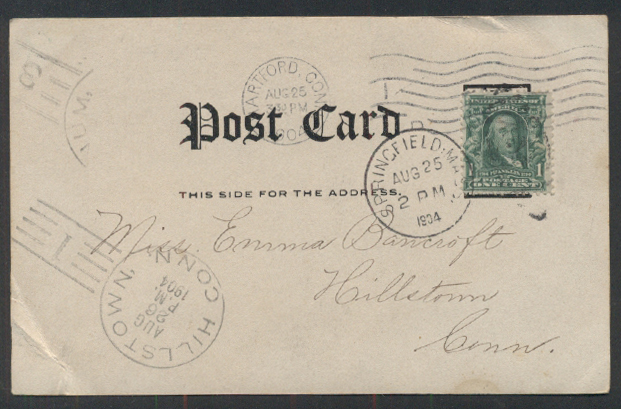 HARTFORD, CONN.
AUG 25
3 30 PM
1904
Post Card
THIS SIDE FOR THE ADDRESS.
SPRINGFIELD, MASS.
AUG 25
2 PM
1904
1 POSTAGE 1
ONE CENT
Miss. Emma Bancroft
Hillstown
Conn.
HILLSTOWN, CONN.
AUG
P.M.
1904
1